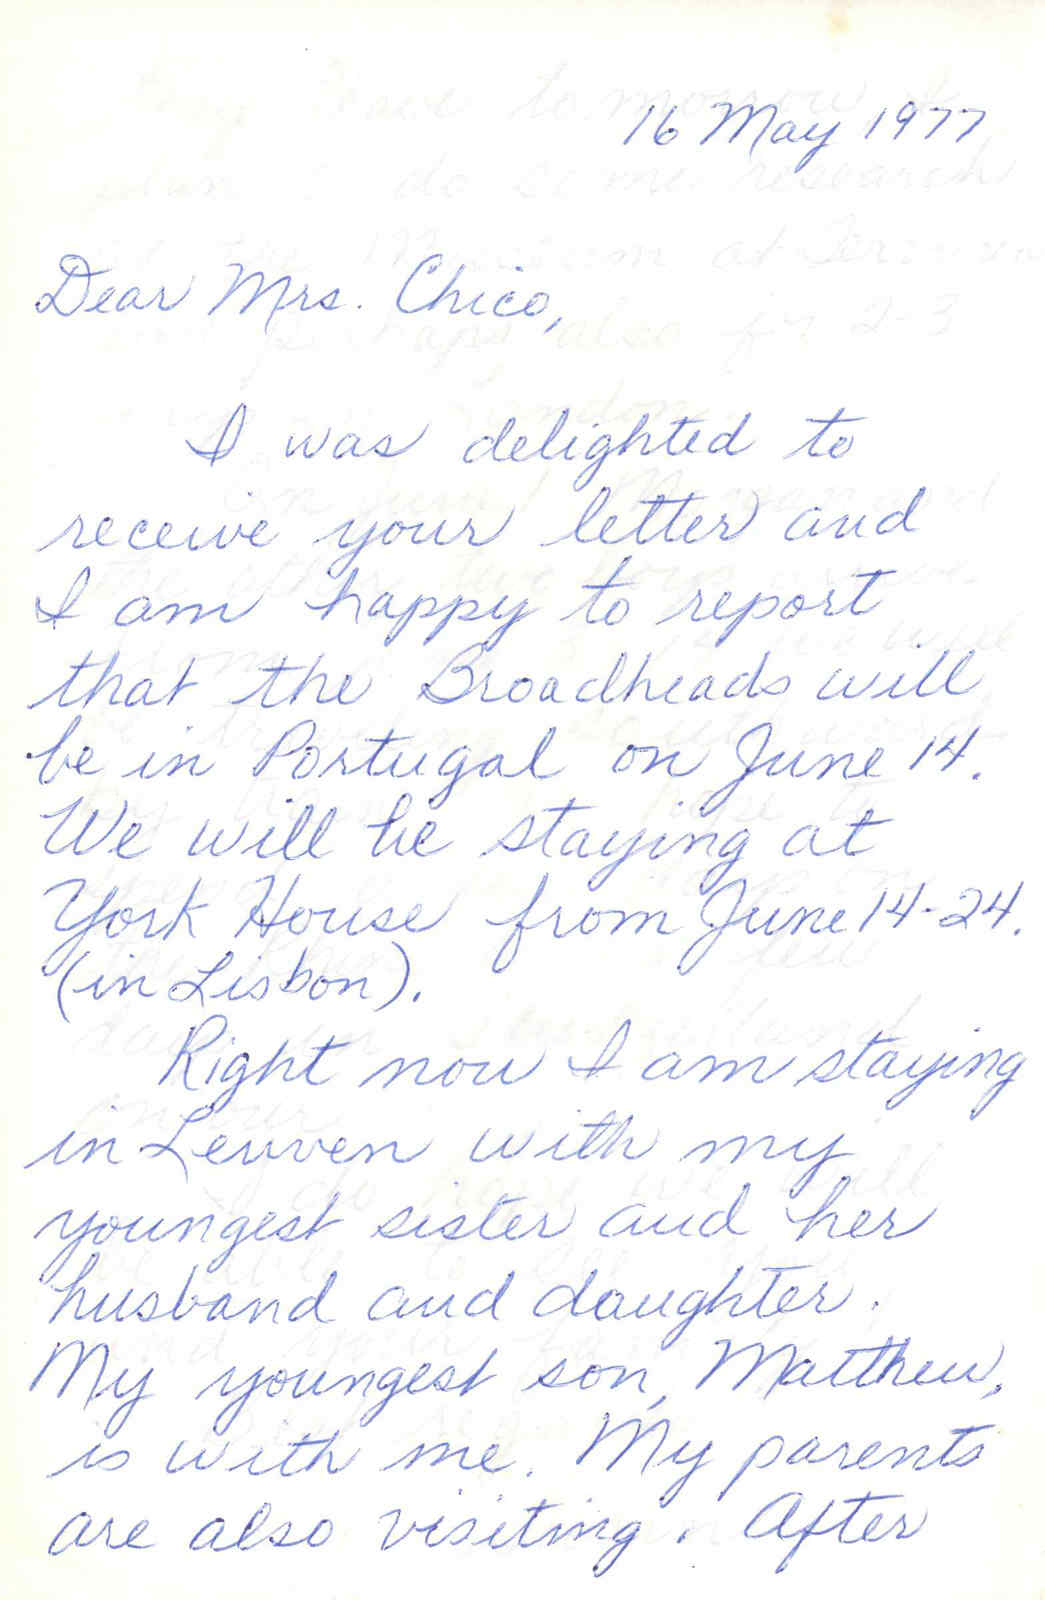 16 May 1977
Dear Mrs. Chico,
I was delighted to
receive your letter and
I am happy to report
that the Broadheads will
be in Portugal on June 14.
We will be staying at
York House from June 14-24.
(in Lisbon).
Right now I am staying
in Leuven with my
youngest sister and her
husband and daughter.
My youngest son, Matthew,
is with me. My parents
are also visiting. After